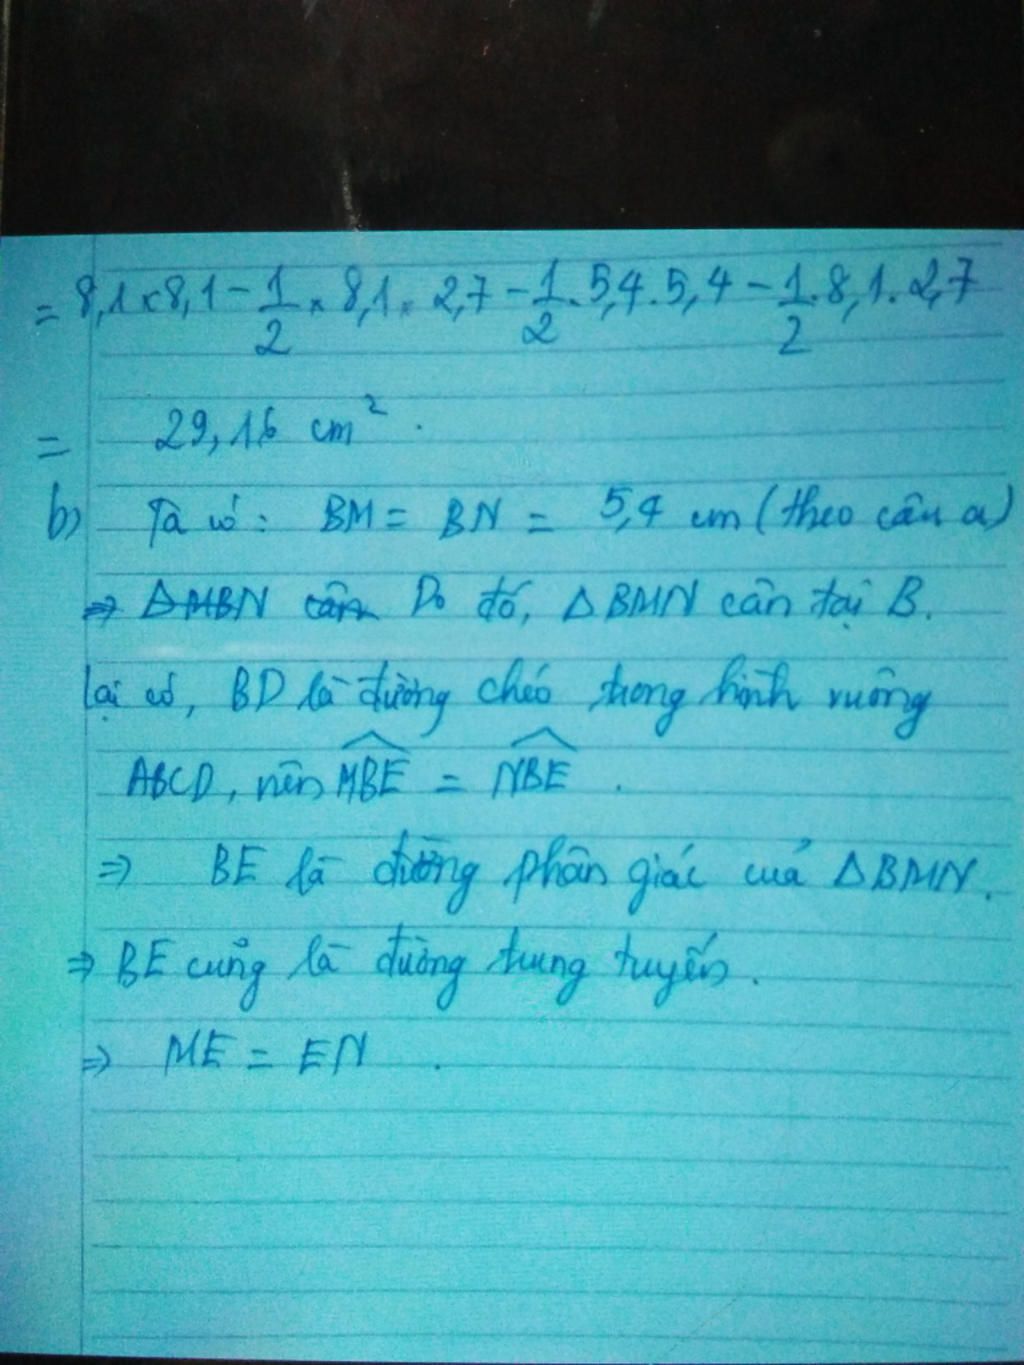 = 8,1 x 8,1 - 1/2 x 8,1 x 2,7 - 1/2 . 5,4 . 5,4 - 1/2 . 8,1 . 2,7
= 29,16 cm².
b) Ta có: BM = BN = 5,4 cm (theo câu a)
⇒ ΔMBN cân Do đó, ΔBMN cân tại B.
Lại có, BD là đường chéo trong hình vuông
ABCD, nên \widehat{MBE} = \widehat{NBE}.
⇒ BE là đường phân giác của ΔBMN.
⇒ BE cũng là đường trung tuyến.
⇒ ME = EN.